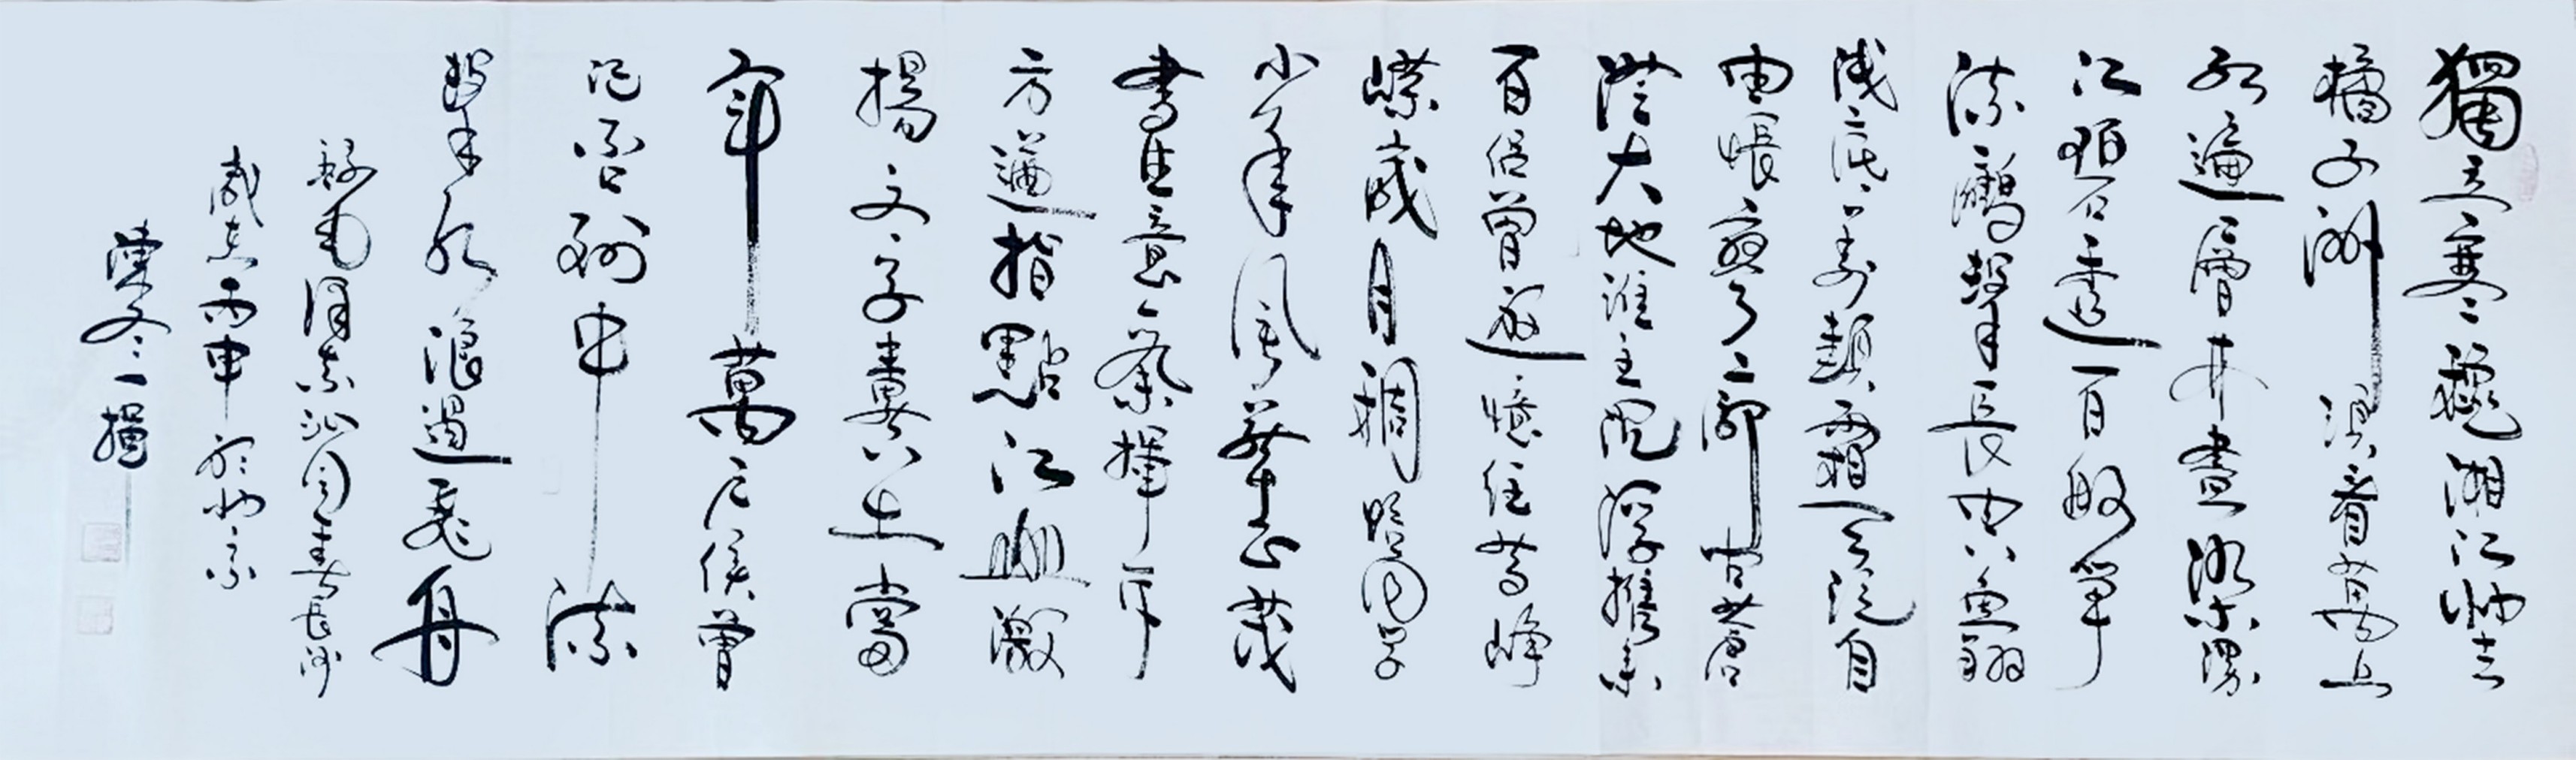 獨立寒穐湘江北去
橘子洲頭看萬山
紅遍層林盡染漫
江碧透百舸爭
流鷹擊長空魚翔
淺底萬類霜天競自
由悵寥廓問蒼
茫大地誰主沉浮攜來
百侶曾遊憶往昔崢
嶸歲月稠恰同學
少年風華正茂
書生意氣揮斥
方遒指點江山激
揚文字糞土當
年萬戶侯曾
記否到中流
擊水浪遏飛舟
録毛澤東沁園春長沙
歲末丙申於北京
冬